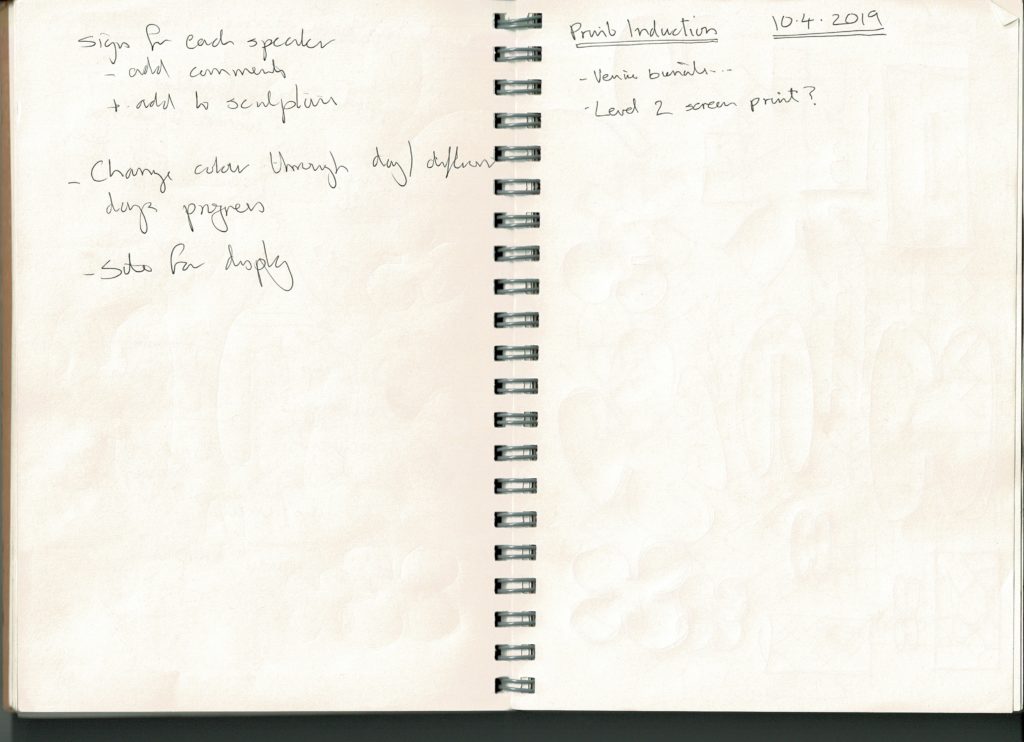 Signs for each speaker
- add comments
+ add to sculption
- Change colour through day / different
days progress
- Site for display
Print Induction 10.4.2019
- Venice
- Level 2 screen print?